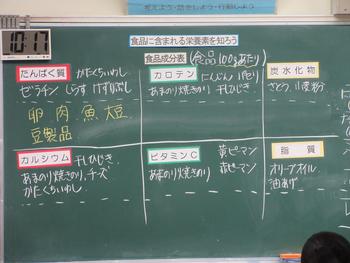 考えよう・話そう・行動しよう
10:17
食品に含まれる栄養素を知ろう
食品成分表(食品100gあたり)
たんぱく質 かたくちいわし
ゼラチン しらす けずりぶし
卵 肉 魚 大豆
豆製品
カロテン にんじん パセリ
あまのり焼きのり 干しひじき
炭水化物
さとう 小麦粉
カルシウム 干しひじき
あまのり焼きのり、チーズ
かたくちいわし
ビタミンC 黄ピーマン
あまのり焼きのり 赤ピーマン
脂質
オリーブオイル
油あげ